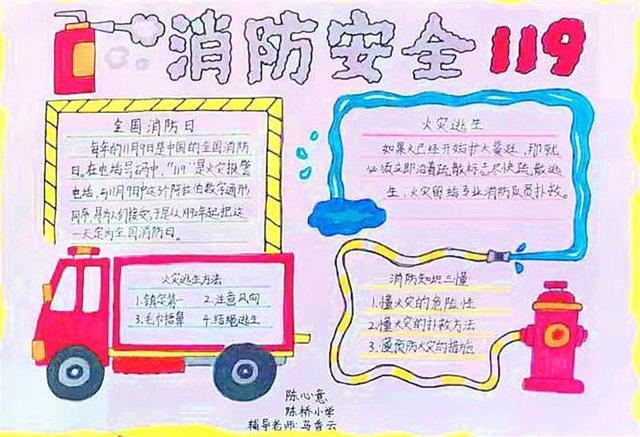 消防安全119
全国消防日
每年的11月9日是中国的全国消防
日。在电话号码中,"119"是火灾报警
电话,与11月9日中这3个阿拉伯数字
一天定为全国消防日。
火灾逃生
如果火已经开始扩大蔓延,那就
必须立即沿着疏散标志尽快疏散逃
生,火灾留给专业消防队员扑救。
火灾逃生方法
1.镇定第一 2.注意风向
3.毛巾捂鼻 4.结绳逃生
消防知识三懂
1.懂火灾的危险性
2.懂火灾的扑救方法
3.懂预防火灾的措施
陈心意
陈桥小学
辅导老师:马香云